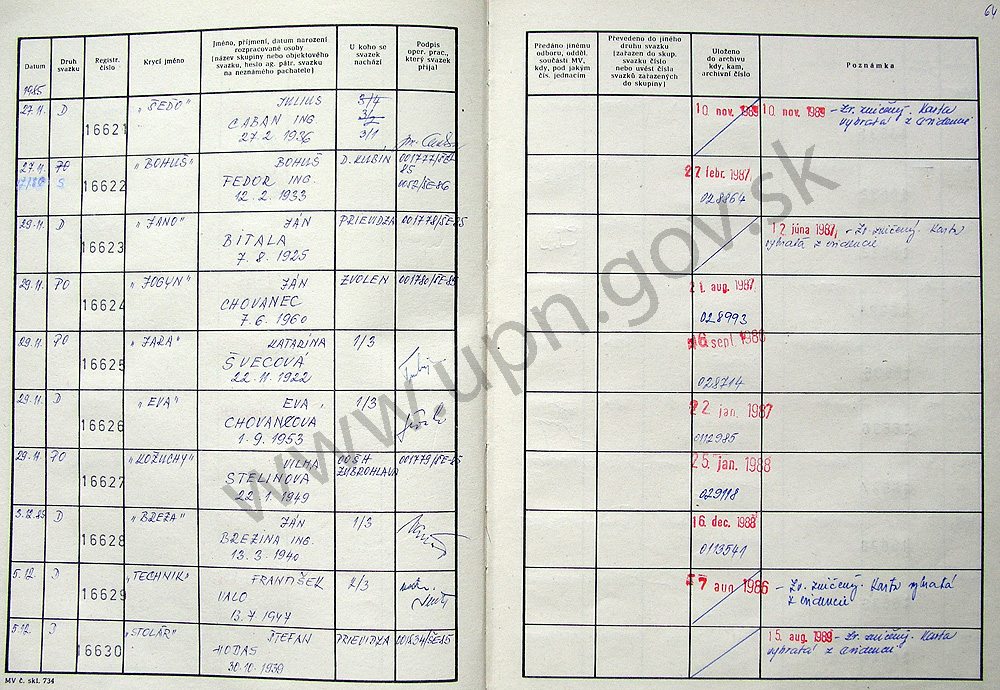 64
Datum
Druh svazku
Registr. číslo
Krycí jméno
Jméno, příjmení, datum narození
rozpracované osoby
(název skupiny nebo objektového
svazku, heslo ag. pátr. svazku
na neznámého pachatele)
U koho se
svazek
nachází
Podpis
oper. prac.,
který svazek
přijal
Předáno jinému
odboru, odděl.
součásti MV,
kdy, pod jakým
čís. jednacím
Převedeno do jiného
druhu svazku
(zařazen do skup.
svazku číslo
nebo uvést čísla
svazků zařazených
do skupiny)
Uloženo
do archivu
kdy, kam,
archivní číslo
Poznámka
1985
27.11. D 16621 "ŠEDO" JULIUS 3/4
CABAN ING. 3/2
27.2. 1936 3/1
10 nov. 1989 10 nov. 1989 - Zv. zničený. Karta
vybratá z evidencie
27.11. PO 16622 "BOHUŠ" BOHUŠ D. KUBIN 001777/ŠE-
S FEDOR ING. 85
12. 2. 1933 0052/ŠE-86
27 febr. 1987
028864
29.11. D 16623 "JANO" JÁN PRIEVIDZA 001778/ŠE-85
BITALA
7. 8. 1925
12 júna 1987, - Zv. zničený. Karta
vybratá z evidencie
29.11. PO 16624 JÁN ZVOLEN 001780/ŠE-85
CHOVANEC
7. 6. 1960
21. aug. 1987
028993
29.11. PO 16625 "JARA" KATARÍNA 1/3
ŠVECOVÁ
22. 11. 1922
sept. 1986
028714
29.11. D 16626 "EVA" EVA 1/3
CHOVANCOVA
1. 9. 1953
22. jan. 1987
0112985
29.11. PO 16627 "KOŽUCHY" VILMA OO ŠH 001779/ŠE-85
STELINOVA ZUBROHLAVA
22. 1. 1949
25. jan. 1988
029118
3.12.85 D 16628 "BREZA" JÁN 1/3
BREZINA ING.
13. 3. 1940
16. dec. 1988
0113541
5.12. D 16629 "TECHNIK" FRANTIŠEK 2/3
VALO
13. 7. 1947
7 aug 1986 - Zv. zničený. Karta vybratá
z evidencie
5.12. D 16630 "STOLÁR" ŠTEFAN PRIEVIDZA
30. 10. 1930
15. aug. 1989 - Zv. zničený. Karta
vybratá z evidencie
MV č. skl. 734
www.upn.gov.sk